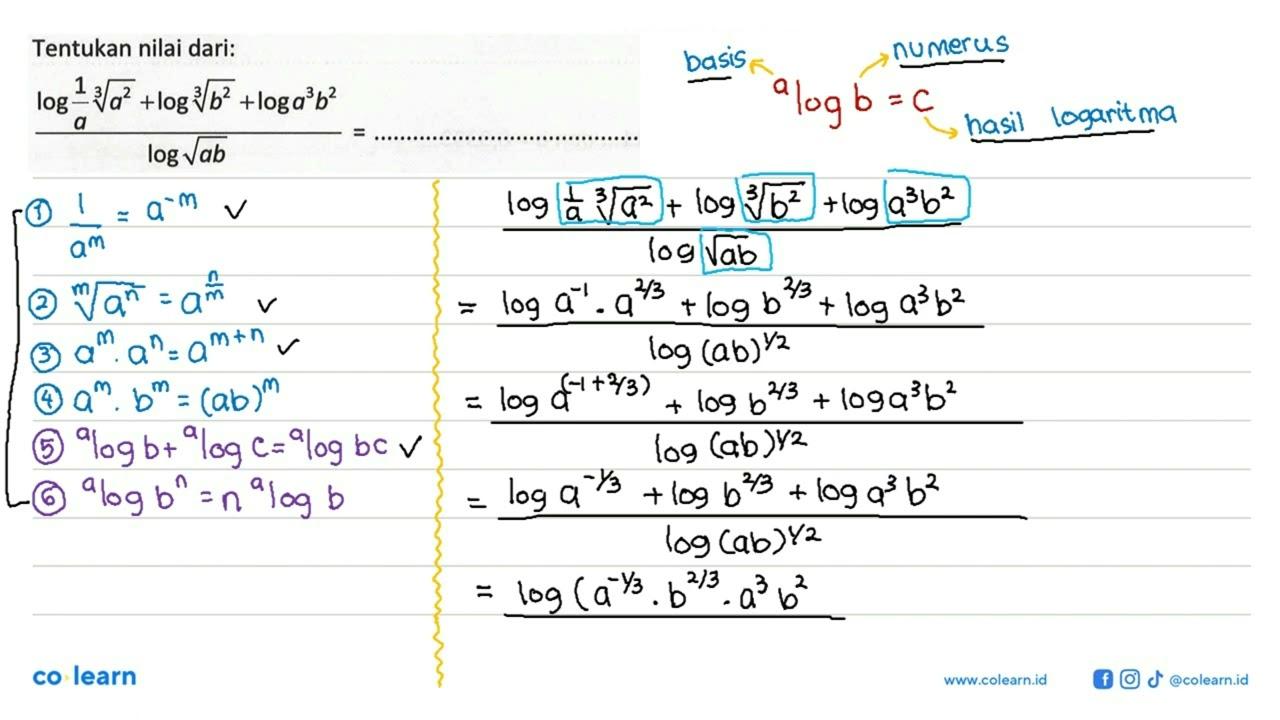 Tentukan nilai dari:
log 1/a ∛a² + log ∛b² + log a³b²
log √ab
= ........................................
basis
numerus
ᵃlog b = c
hasil logaritma
① 1/aᵐ = a⁻ᵐ ✓
② ᵐ√aⁿ = a^(n/m) ✓
③ aᵐ . aⁿ = aᵐ⁺ⁿ ✓
④ aᵐ . bᵐ = (ab)ᵐ
⑤ ᵃlog b + ᵃlog c = ᵃlog bc ✓
⑥ ᵃlog bⁿ = n ᵃlog b
log 1/a ∛a² + log ∛b² + log a³b²
log √ab
= log a⁻¹ . a^2/3 + log b^2/3 + log a³b²
log (ab)^1/2
= log a^(-1+2/3) + log b^2/3 + log a³b²
log (ab)^1/2
= log a^-1/3 + log b^2/3 + log a³b²
log (ab)^1/2
= log (a^-1/3 . b^2/3 . a³ b²
co learn
www.colearn.id
@colearn.id